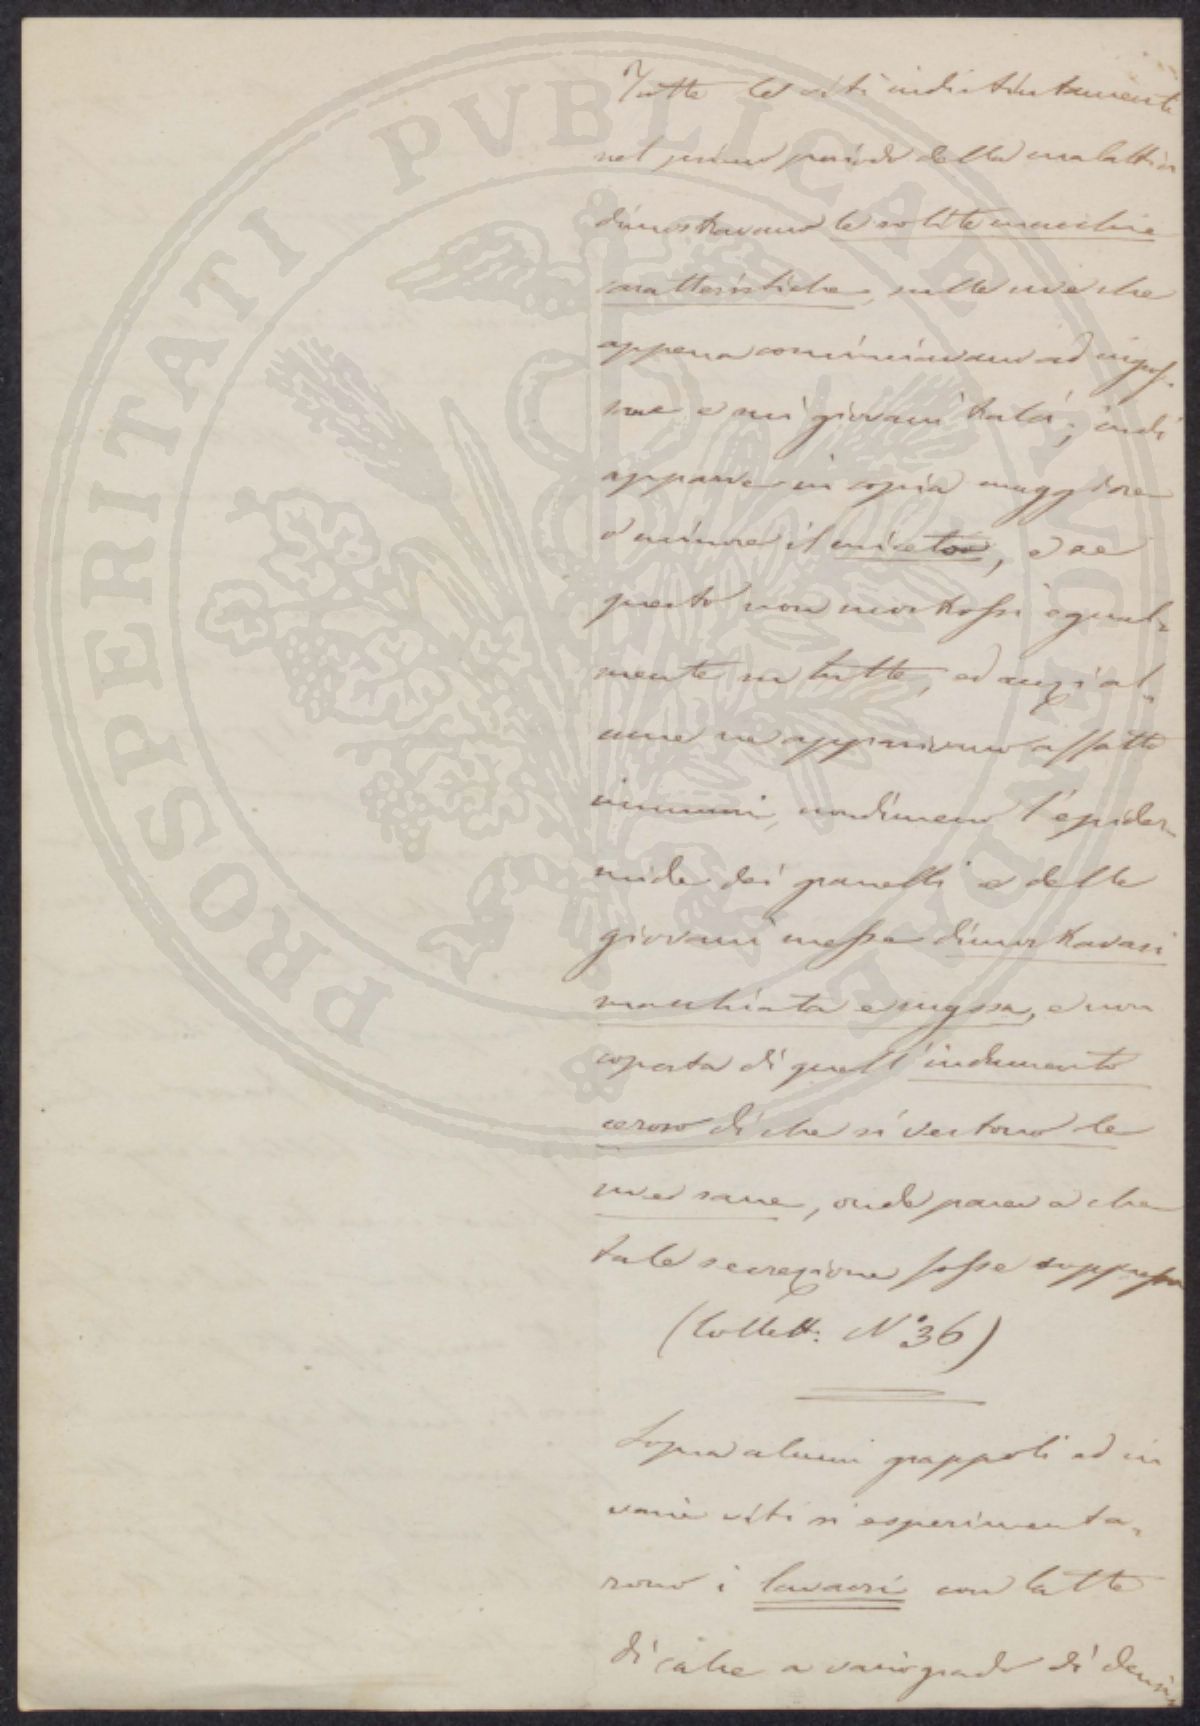 PROSPERITATI PVBLICAE AVGENDAE
Tutte le viti indistintamente
nel primo periodo della malattia
dimostravano le solite macchie
caratteristiche, sulle uve che
appena cominciavano ad ingros-
sare e sui giovani tralci; indi
apparve in copia maggiore
o minore il micetoo, e se
questo non mostrossi egual-
mente su tutte, ed anzi al-
cune ne apparivano affatto
immuni, nondimeno l'epider-
mide dei granelli e delle
giovani messe dimostravasi
macchiata e rugosa, e non
coperta di quell'indumento
ceroso di che si vestono le
uve sane, onde pareva che
tale secrezione fosse soppressa
(Collett: N° 36)
Sopra alcuni grappoli ed in
varie viti si esperimenta-
rono i lavacri con latte
di calce a vario grado di densi